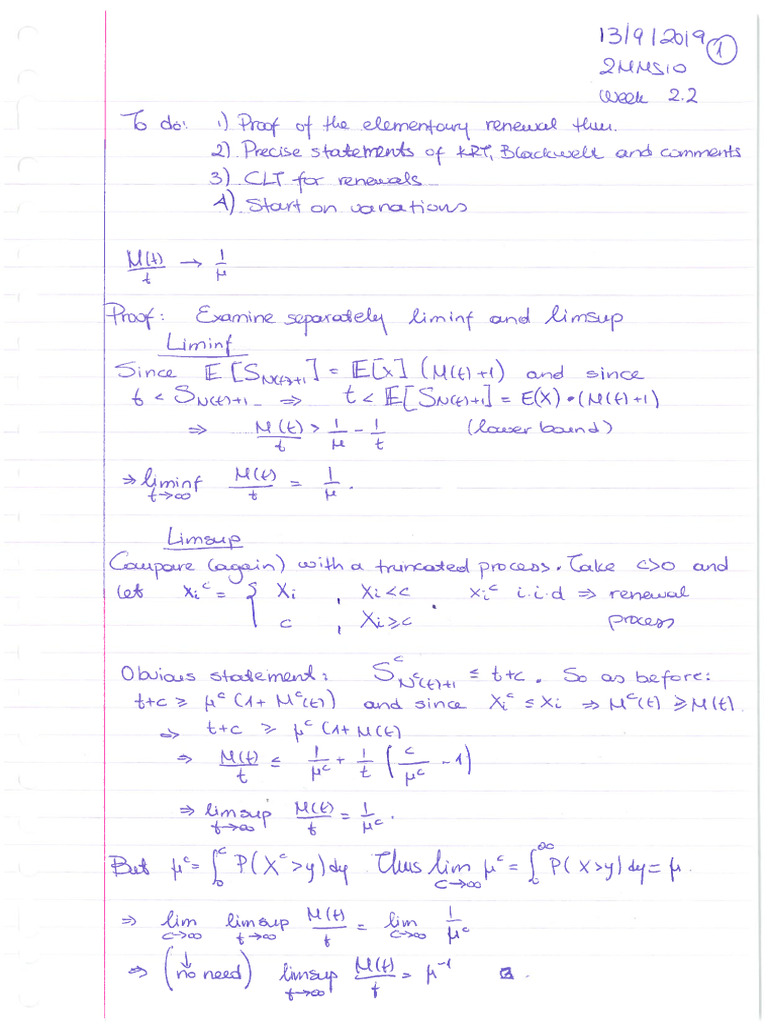 13/9/2019 ①
2MMS10
Week 2.2
To do: 1) Proof of the elementary renewal thm.
2) Precise statements of KRT, Blackwell and comments
3) CLT for renewals
4) Start on variations
M(t)/t → 1/μ
Proof: Examine separately liminf and limsup
Liminf
Since 𝔼[S_{N(t)+1}] = 𝔼[X] (M(t)+1) and since
t < S_{N(t)+1} ⇒ t < 𝔼[S_{N(t)+1}] = E(X)•(M(t)+1)
⇒ M(t)/t > 1/μ - 1/t (lower bound)
⇒ liminf_{t→∞} M(t)/t = 1/μ.
Limsup
Compare (again) with a truncated process. Take c>0 and
let X_i^c = { X_i , X_i<c . X_i^c i.i.d ⇒ renewal
c , X_i≥c process
Obvious statement: S^c_{N^c(t)+1} ≤ t+c. So as before:
t+c ≥ μ^c (1+M^c(t)) and since X_i^c ≤ X_i ⇒ M^c(t) ≥ M(t).
⇒ t+c ≥ μ^c (1+M(t)
⇒ M(t)/t ≤ 1/μ^c + 1/t (c/μ^c - 1)
⇒ limsup_{t→∞} M(t)/t = 1/μ^c.
But μ^c = ∫_0^c P(X^c>y)dy Thus lim_{c→∞} μ^c = ∫_0^∞ P(X>y)dy = μ.
⇒ lim_{c→∞} limsup_{t→∞} M(t)/t = lim_{c→∞} 1/μ^c
⇒ (↓ no need) limsup_{t→∞} M(t)/t = μ^{-1} □.